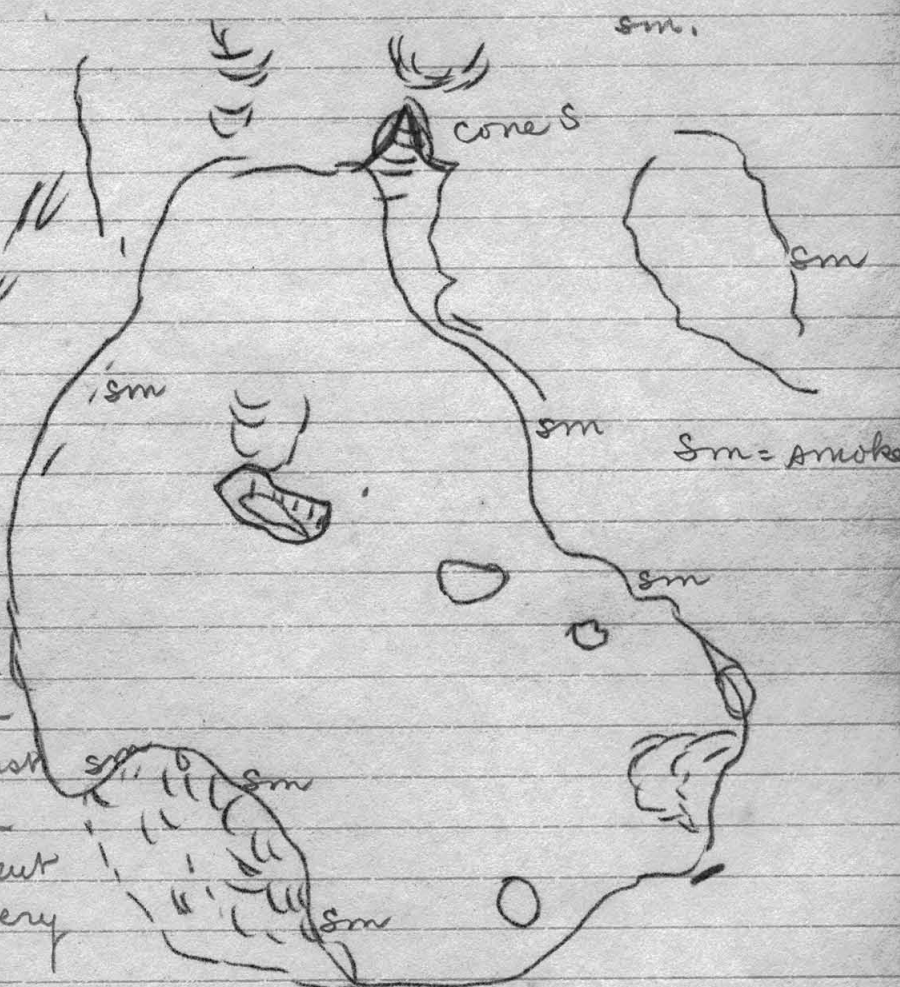 sm.
cone S
sm
sm
sm
Sm = smoke
sm
sm
sm
sm